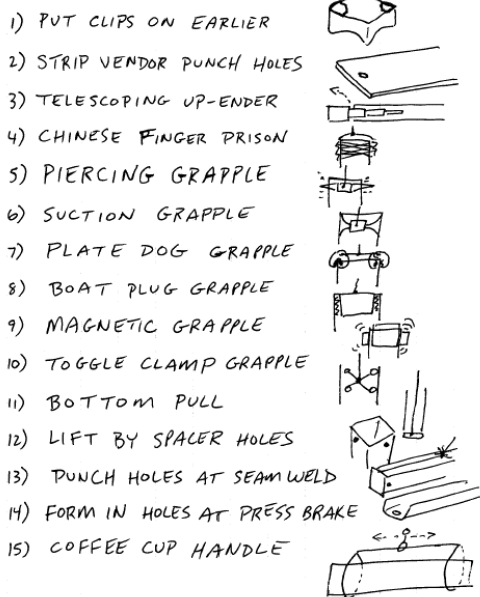 1) PUT CLIPS ON EARLIER
2) STRIP VENDOR PUNCH HOLES
3) TELESCOPING UP-ENDER
4) CHINESE FINGER PRISON
5) PIERCING GRAPPLE
6) SUCTION GRAPPLE
7) PLATE DOG GRAPPLE
8) BOAT PLUG GRAPPLE
9) MAGNETIC GRAPPLE
10) TOGGLE CLAMP GRAPPLE
11) BOTTOM PULL
12) LIFT BY SPACER HOLES
13) PUNCH HOLES AT SEAM WELD
14) FORM IN HOLES AT PRESS BRAKE
15) COFFEE CUP HANDLE